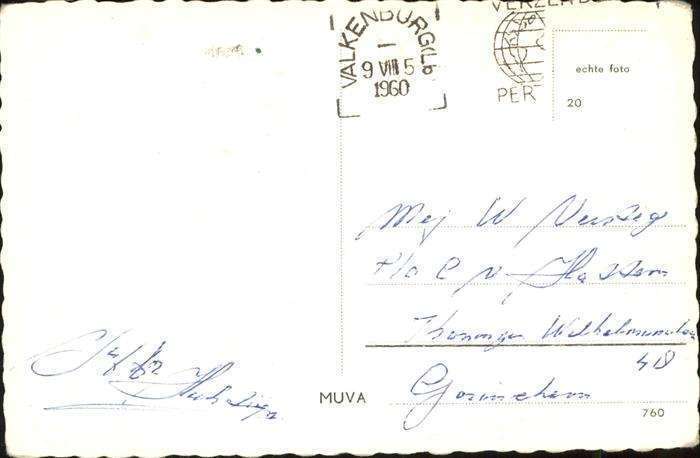 VALKENBURG(Lb
9 VIII 5
1960
VERZEND
PER
echte foto
20
Mej W Versteeg
p/a C v
Koningin Wilhelminalaan
48
Gorinchem
MUVA
760